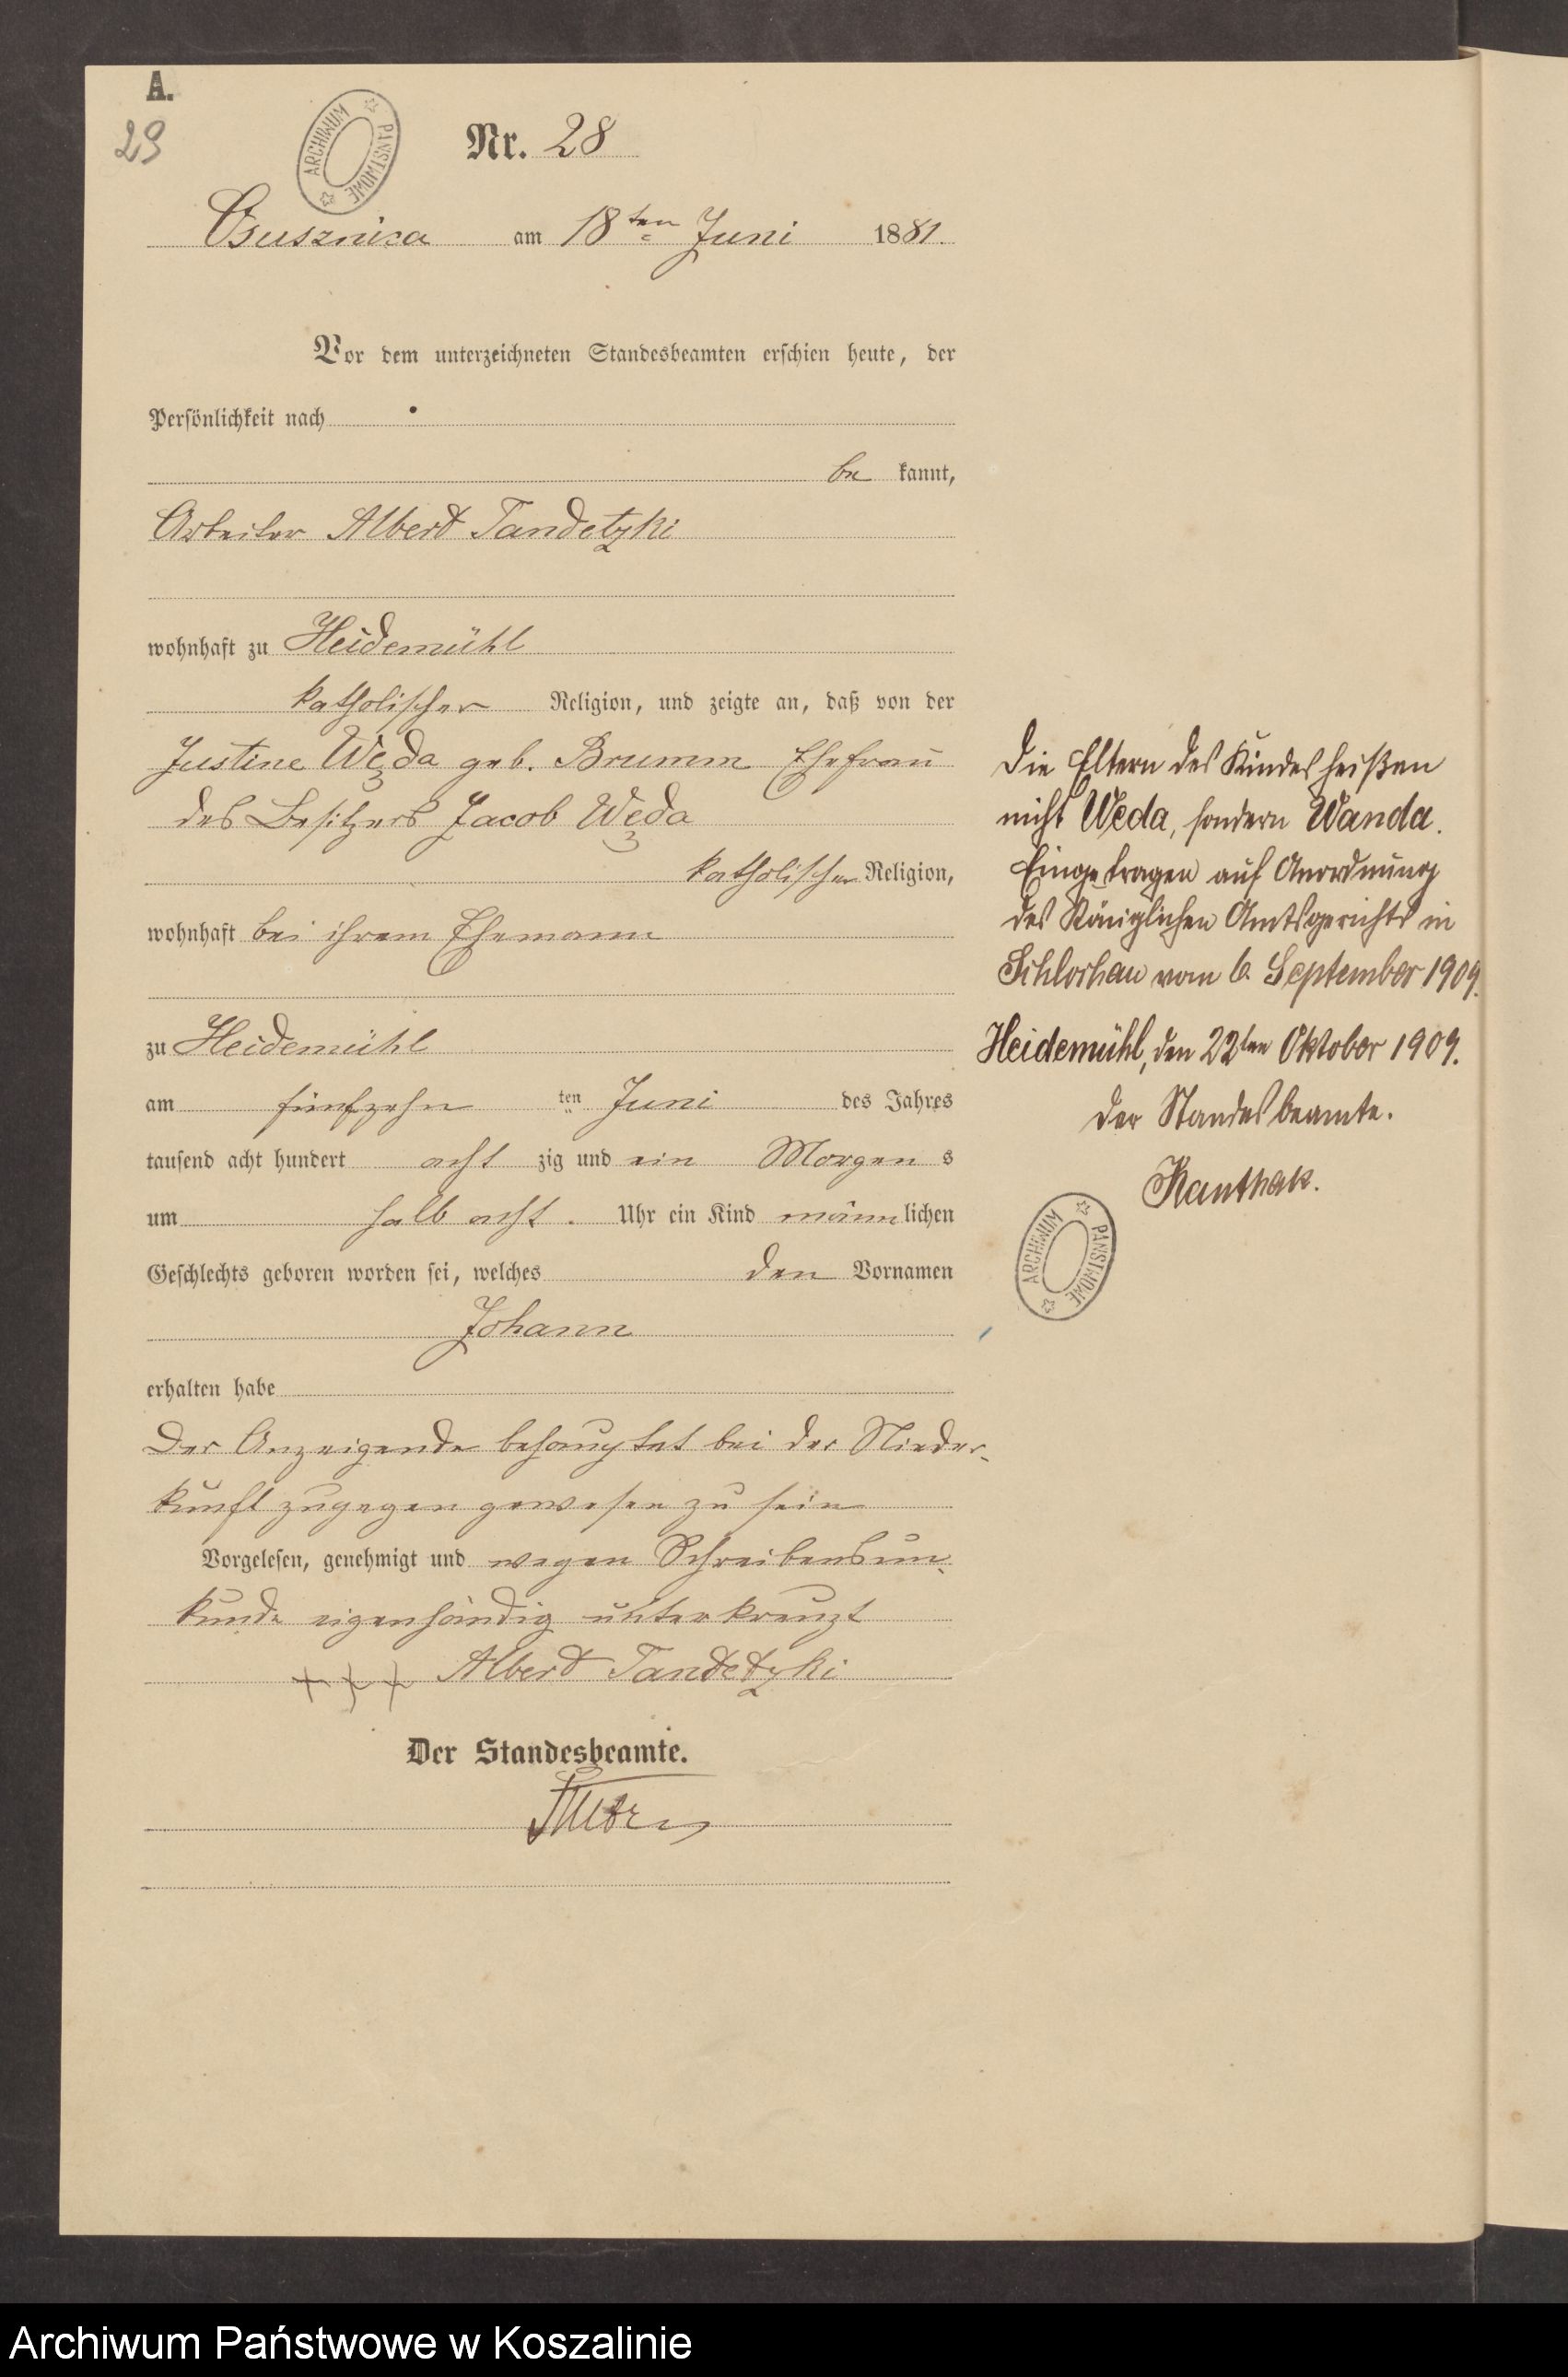 A.
29
ARCHIWUM PAŃSTWOWE
Nr. 28
Osusznica am 18ten Juni 1881.
Vor dem unterzeichneten Standesbeamten erschien heute, der
Persönlichkeit nach
be kannt,
Arbeiter Albert Tandetzki
wohnhaft zu Heidemühl
katholischer Religion, und zeigte an, daß von der
Justine Węda geb. Brumm Ehefrau
des Besitzers Jacob Węda
katholischer Religion,
wohnhaft bei ihrem Ehemann
zu Heidemühl
am fünfzehn ten Juni des Jahres
tausend acht hundert acht zig und ein Morgen s
um halb acht. Uhr ein Kind männlichen
Geschlechts geboren worden sei, welches den Vornamen
Johann
erhalten habe
Der Anzeigende behauptet bei der Nieder-
kunft zugegen gewesen zu sein
Vorgelesen, genehmigt und wegen Schreibensun-
kunde eigenhändig unterkreuzt
+ + + Albert Tandetzki
Der Standesbeamte.
Die Eltern des Kindes heißen
nicht Węda, sondern Wanda.
Eingetragen auf Anordnung
des Königlichen Amtsgerichts in
Schlochau vom 6. September 1909.
Heidemühl, den 22ten Oktober 1909.
Der Standesbeamte.
Kanthak.
ARCHIWUM PAŃSTWOWE
Archiwum Państwowe w Koszalinie